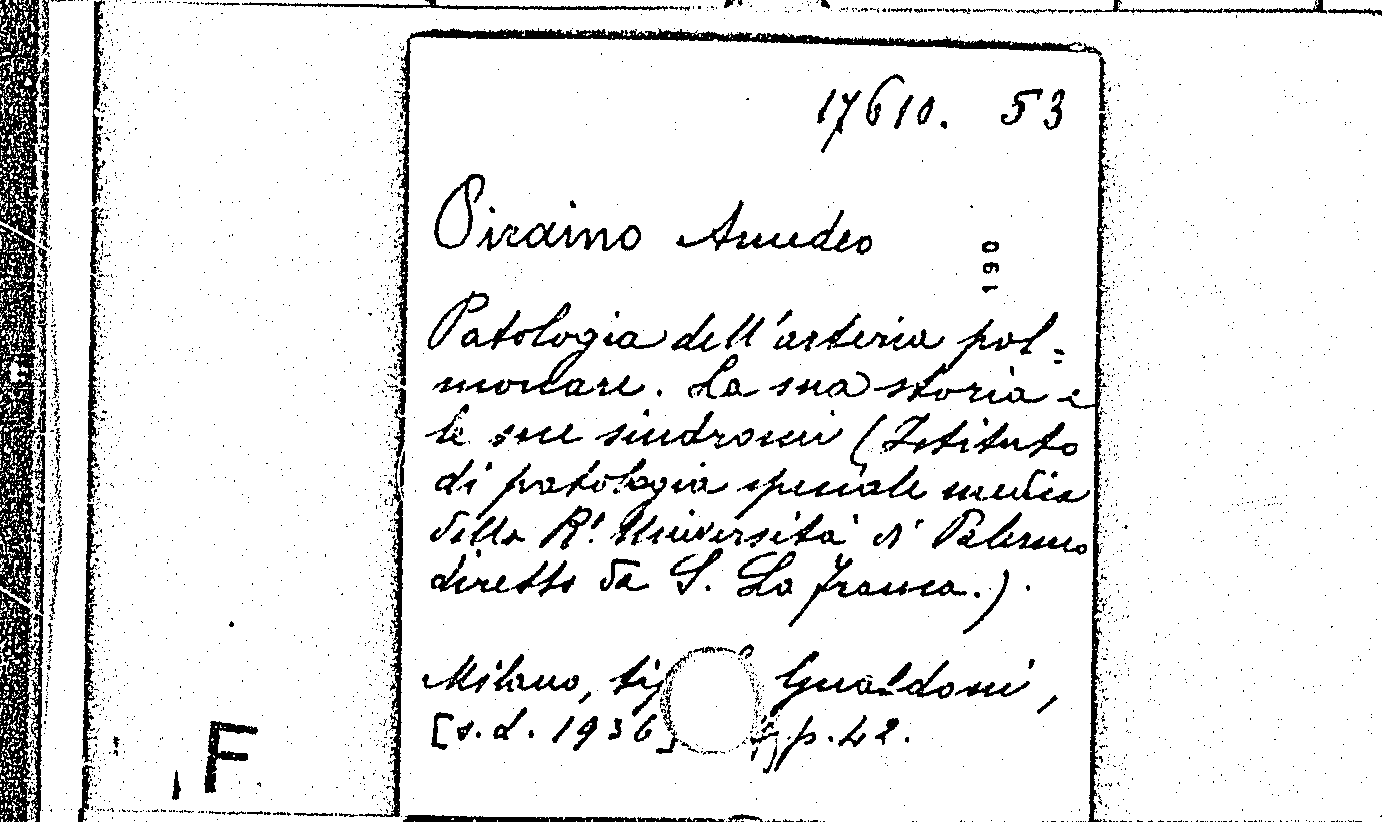 17610. 53
Piraino Amedeo
190
Patologia dell'arteria pol=
monare. La sua storia e
le sue sindromi (Istituto
di patologia speciale medica
della R.' Università di Palermo
diretto da S. La Franca.).
Milano, tip Gualdoni,
[s.d. 1936] pp. 42.
F